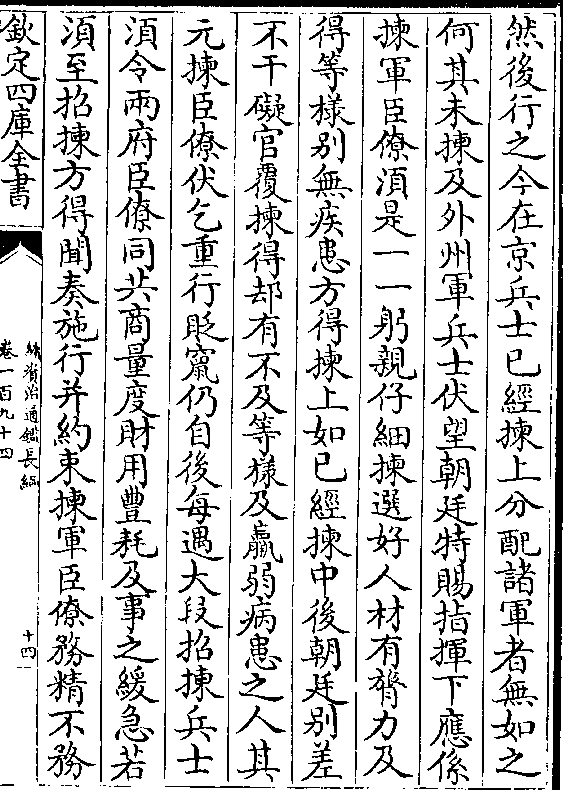 然後行之今在京兵士已經揀上分配諸軍者無如之
何其未揀及外州軍兵士伏望朝廷特賜指揮下應係
揀軍臣僚湏是一一躬親仔細揀選好人材有膂力及
得等樣别無疾患方得揀上如已經揀中後朝廷别差
不干礙官覆揀得却有不及等様及羸弱病患之人其
元揀臣僚伏乞重行貶竄仍自後每遇大段招揀兵士
湏令兩府臣僚同共商量度財用豐耗及事之緩急若
湏至招揀方得聞奏施行并約束揀軍臣僚務精不務
欽定四庫全書
續資治通鑑長編
卷一百九十四
十四